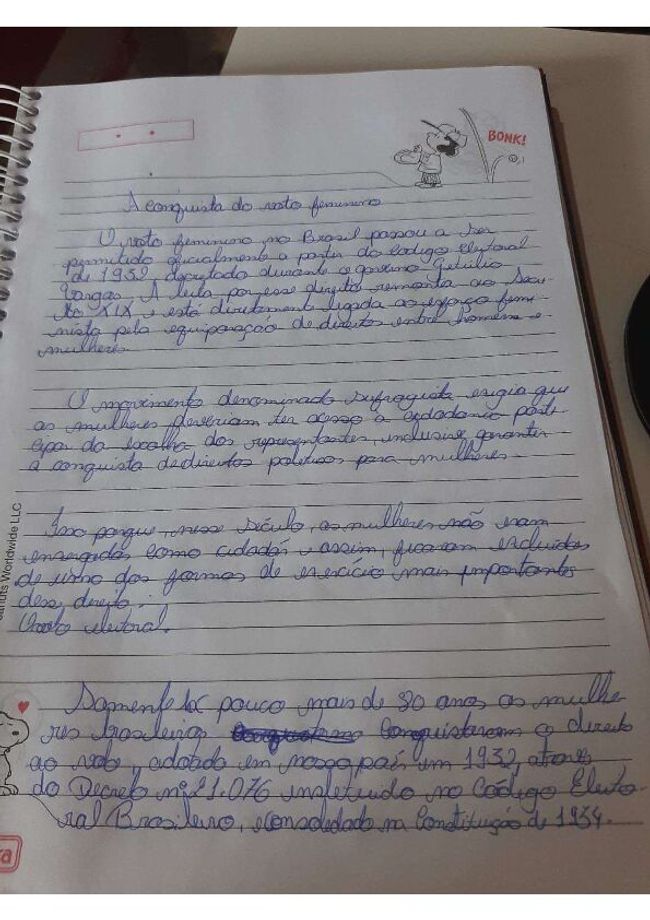 BONK!
A conquista do voto feminino
O voto feminino no Brasil passou a ser
permitido oficialmente a partir do Código Eleitoral
de 1932, decretado durante o governo Getúlio
Vargas. A luta por esse direito remonta ao Sécu-
lo XIX, e está diretamente ligada ao esforço femi-
nista pela equiparação de direitos entre homens e
mulheres.
O movimento denominado sufragista exigia que
as mulheres deveriam ter acesso a cidadania parti-
cipar da escolha dos representantes, inclusive garantir
a conquista de direitos políticos para mulheres
Isso porque, nesse século, as mulheres não eram
enxergadas como cidadãs e assim, ficaram excluídas
de uma das formas de exercício mais importantes
desse direito.
Voto eleitoral.
Somente há pouco mais de 80 anos as mulhe-
res brasileiras conquistaram o direito
ao voto, adotado em nosso país em 1932, através
do Decreto nº 21.076 instituido no Código Eleito-
ral Brasileiro, e consolidado na Constituição de 1934.
anuts Worldwide LLC